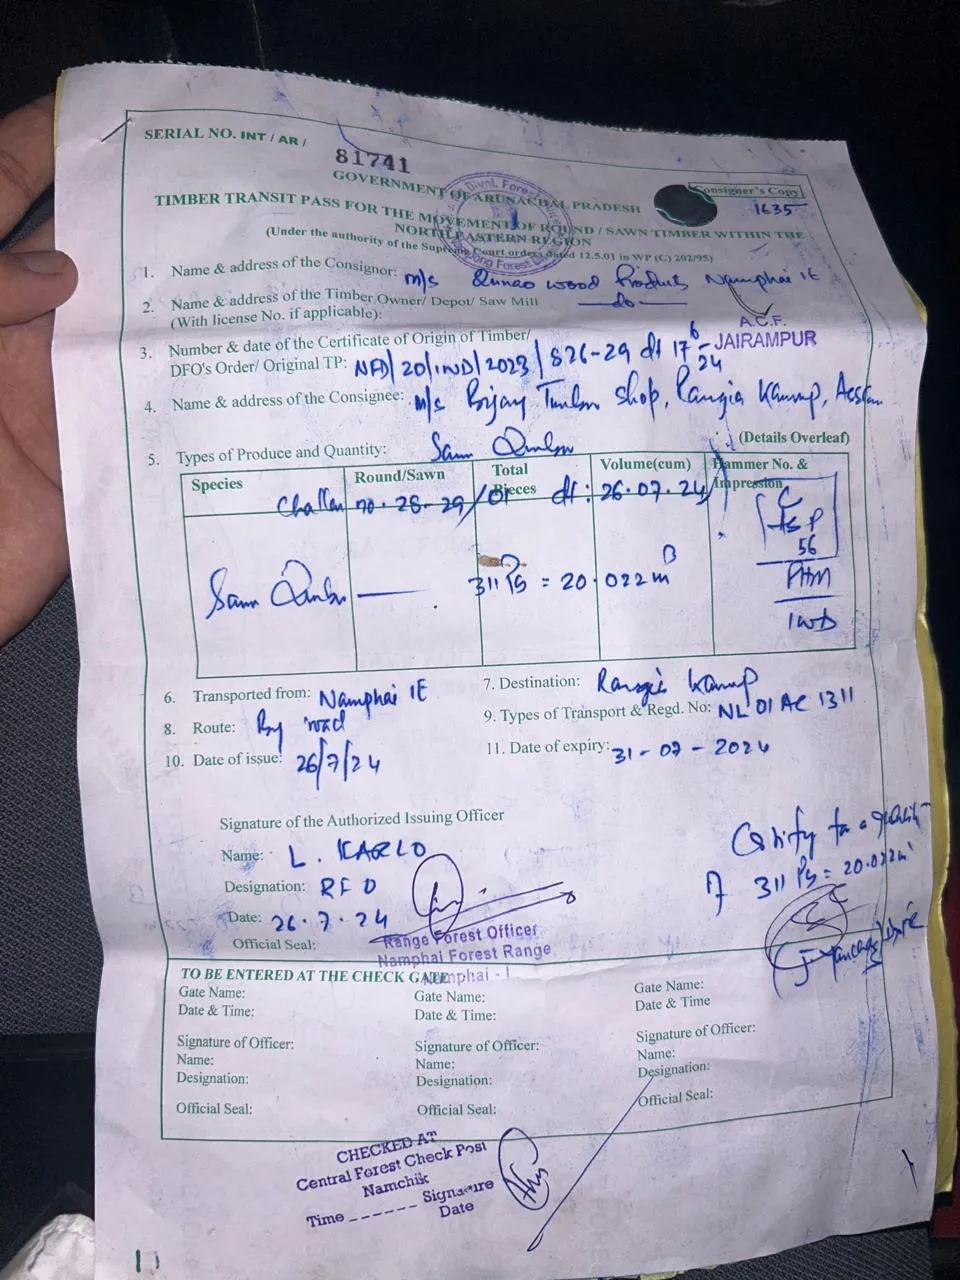 SERIAL NO. INT / AR /
81741
GOVERNMENT OF ARUNACHAL PRADESH
Consigner's Copy
1635
TIMBER TRANSIT PASS FOR THE MOVEMENT OF ROUND / SAWN TIMBER WITHIN THE
NORTH EASTERN REGION
(Under the authority of the Supreme Court orders dated 12.5.01 in WP (C) 202/95)
1. Name & address of the Consignor: m/s wood Products Namphai IE
2. Name & address of the Timber Owner/ Depot/ Saw Mill — do —
(With license No. if applicable):
A.C.F.
JAIRAMPUR
3. Number & date of the Certificate of Origin of Timber/
DFO's Order/ Original TP: NFD/20/IND/2023/826-29 dt 17-6-24
4. Name & address of the Consignee: m/s Bijay Timber Shop, Rangia Kamrup, Assam
5. Types of Produce and Quantity: Sawn Timber
(Details Overleaf)
Species Round/Sawn Total Pieces Volume(cum) Hammer No. & Impression
Challan no. 28-29/01 dt: 26.07.24
Sawn Timber — 311 Ps = 20.022 m3
56
6. Transported from: Namphai IE
7. Destination: Rangia Kamrup
8. Route: By road
9. Types of Transport & Regd. No: NL 01 AC 1311
10. Date of issue: 26/7/24
11. Date of expiry: 31-07-2024
Signature of the Authorized Issuing Officer
Name: L. KARLO
Designation: RFO
Date: 26.7.24
Official Seal:
Range Forest Officer
Namphai Forest Range
Namphai - I
Certify for a quantity
of 311 Ps = 20.022m3
TO BE ENTERED AT THE CHECK GATE
Gate Name: Gate Name: Gate Name:
Date & Time; Date & Time: Date & Time
Signature of Officer: Signature of Officer: Signature of Officer:
Name: Name: Name:
Designation: Designation: Designation:
Official Seal: Official Seal: Official Seal:
CHECKED AT
Central Forest Check Post
Namchik
Time ------ Signature
Date